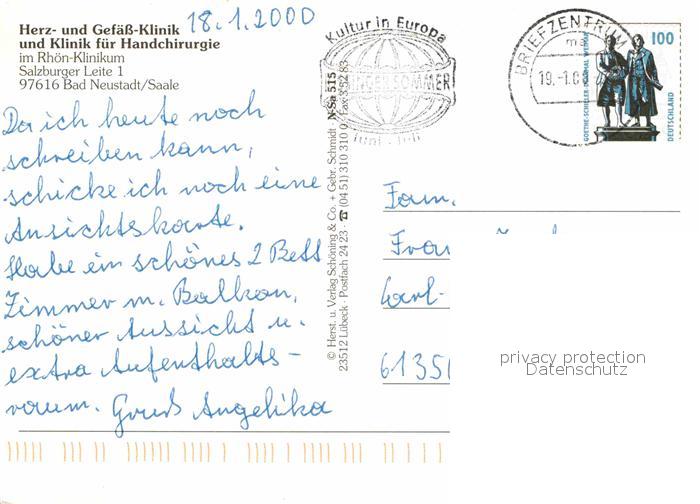 Herz- und Gefäß-Klinik
und Klinik für Handchirurgie
im Rhön-Klinikum
Salzburger Leite 1
97616 Bad Neustadt/Saale
18.1.2000
Da ich heute noch
schreiben kann,
schicke ich noch eine
Ansichtskarte.
Habe ein schönes 2 Bett
Zimmer m. Balkon,
schöner Aussicht u.
extra Aufenthalts-
raum. Gruß Angelika
© Herst. u. Verlag Schöning & Co. + Gebr. Schmidt · N-Sa 515
23512 Lübeck · Postfach 24 23 · ☎ (04 51) 310 310 Fax
Kultur in Europa
SOMMER
Juni - Juli
BRIEFZENTRUM
19.-1.0
100
GOETHE-SCHILLER-DENKMAL WEIMAR
DEUTSCHLAND
Fam.
Carl-
6135
privacy protection
Datenschutz